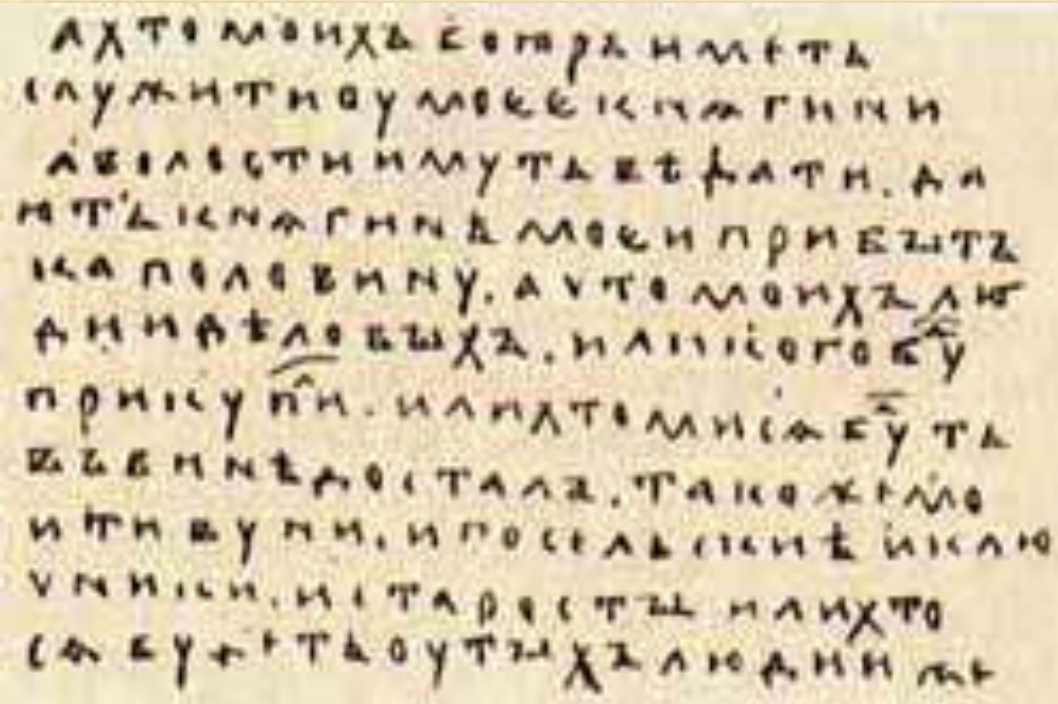 ахтомоихъ боꙗръиметь
служитиоумоеекнѧгини
аволостиимутьвѣдати. да
итьк нѧгинѣмоеиприбꙑтъ
каполовину. ахтомоихълю
дииидѣловꙑхъ. иликогобу
прикупи. илихтомисѧбуть
въвинѣдосталъ. такожемо
итивуни. ипосельскиѣ иклю
чники. истаростꙑ илихто
сѧбудетьоутꙑхълюдии же